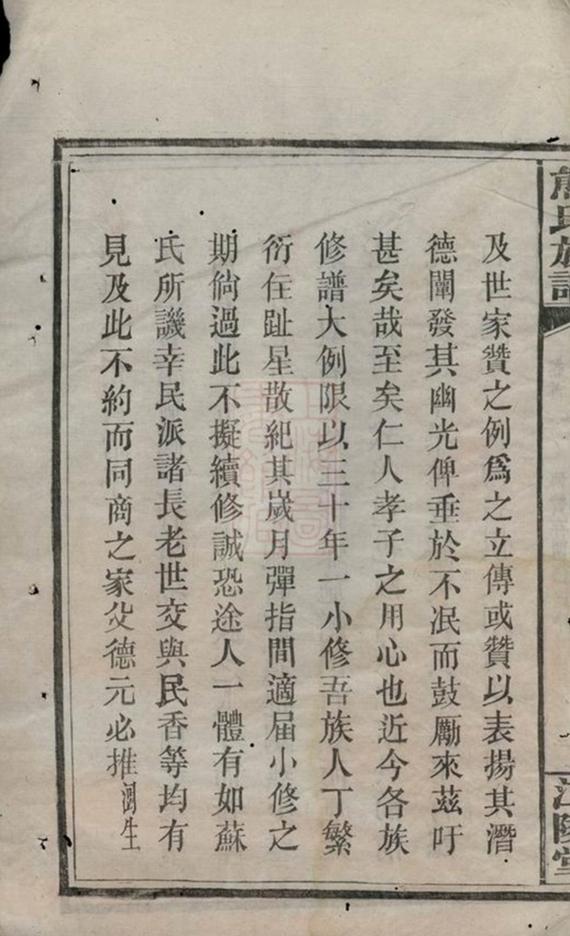 熊氏族譜
江陵堂
及世家贊之例爲之立傳或贊以表揚其潛
德闡發其幽光俾垂於不泯而鼓勵來茲吁
甚矣哉至矣仁人孝子之用心也近今各族
修譜大例限以三十年一小修吾族人丁繁
衍住趾星散紀其歲月彈指間適届小修之
期倘過此不擬續修誠恐途人一體有如蘇
氏所譏幸民派諸長老世交與民香等均有
見及此不約而同商之家父德元必推澍生